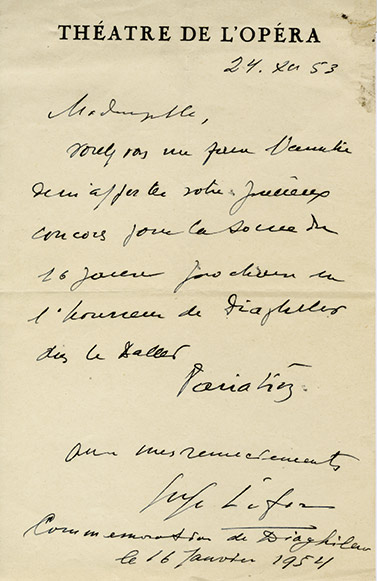 THÉATRE DE L'OPÉRA
24. XII 53
Mademoiselle,
voulez vous me faire l'amitié
de m'apporter votre précieux
concours pour la soirée du
16 janvier prochain en
l'honneur de Diaghilev
dans le Ballet
Variations
avec mes remerciements
Serge Lifar
Commemoration de Diaghilew
le 16 Janvier 1954